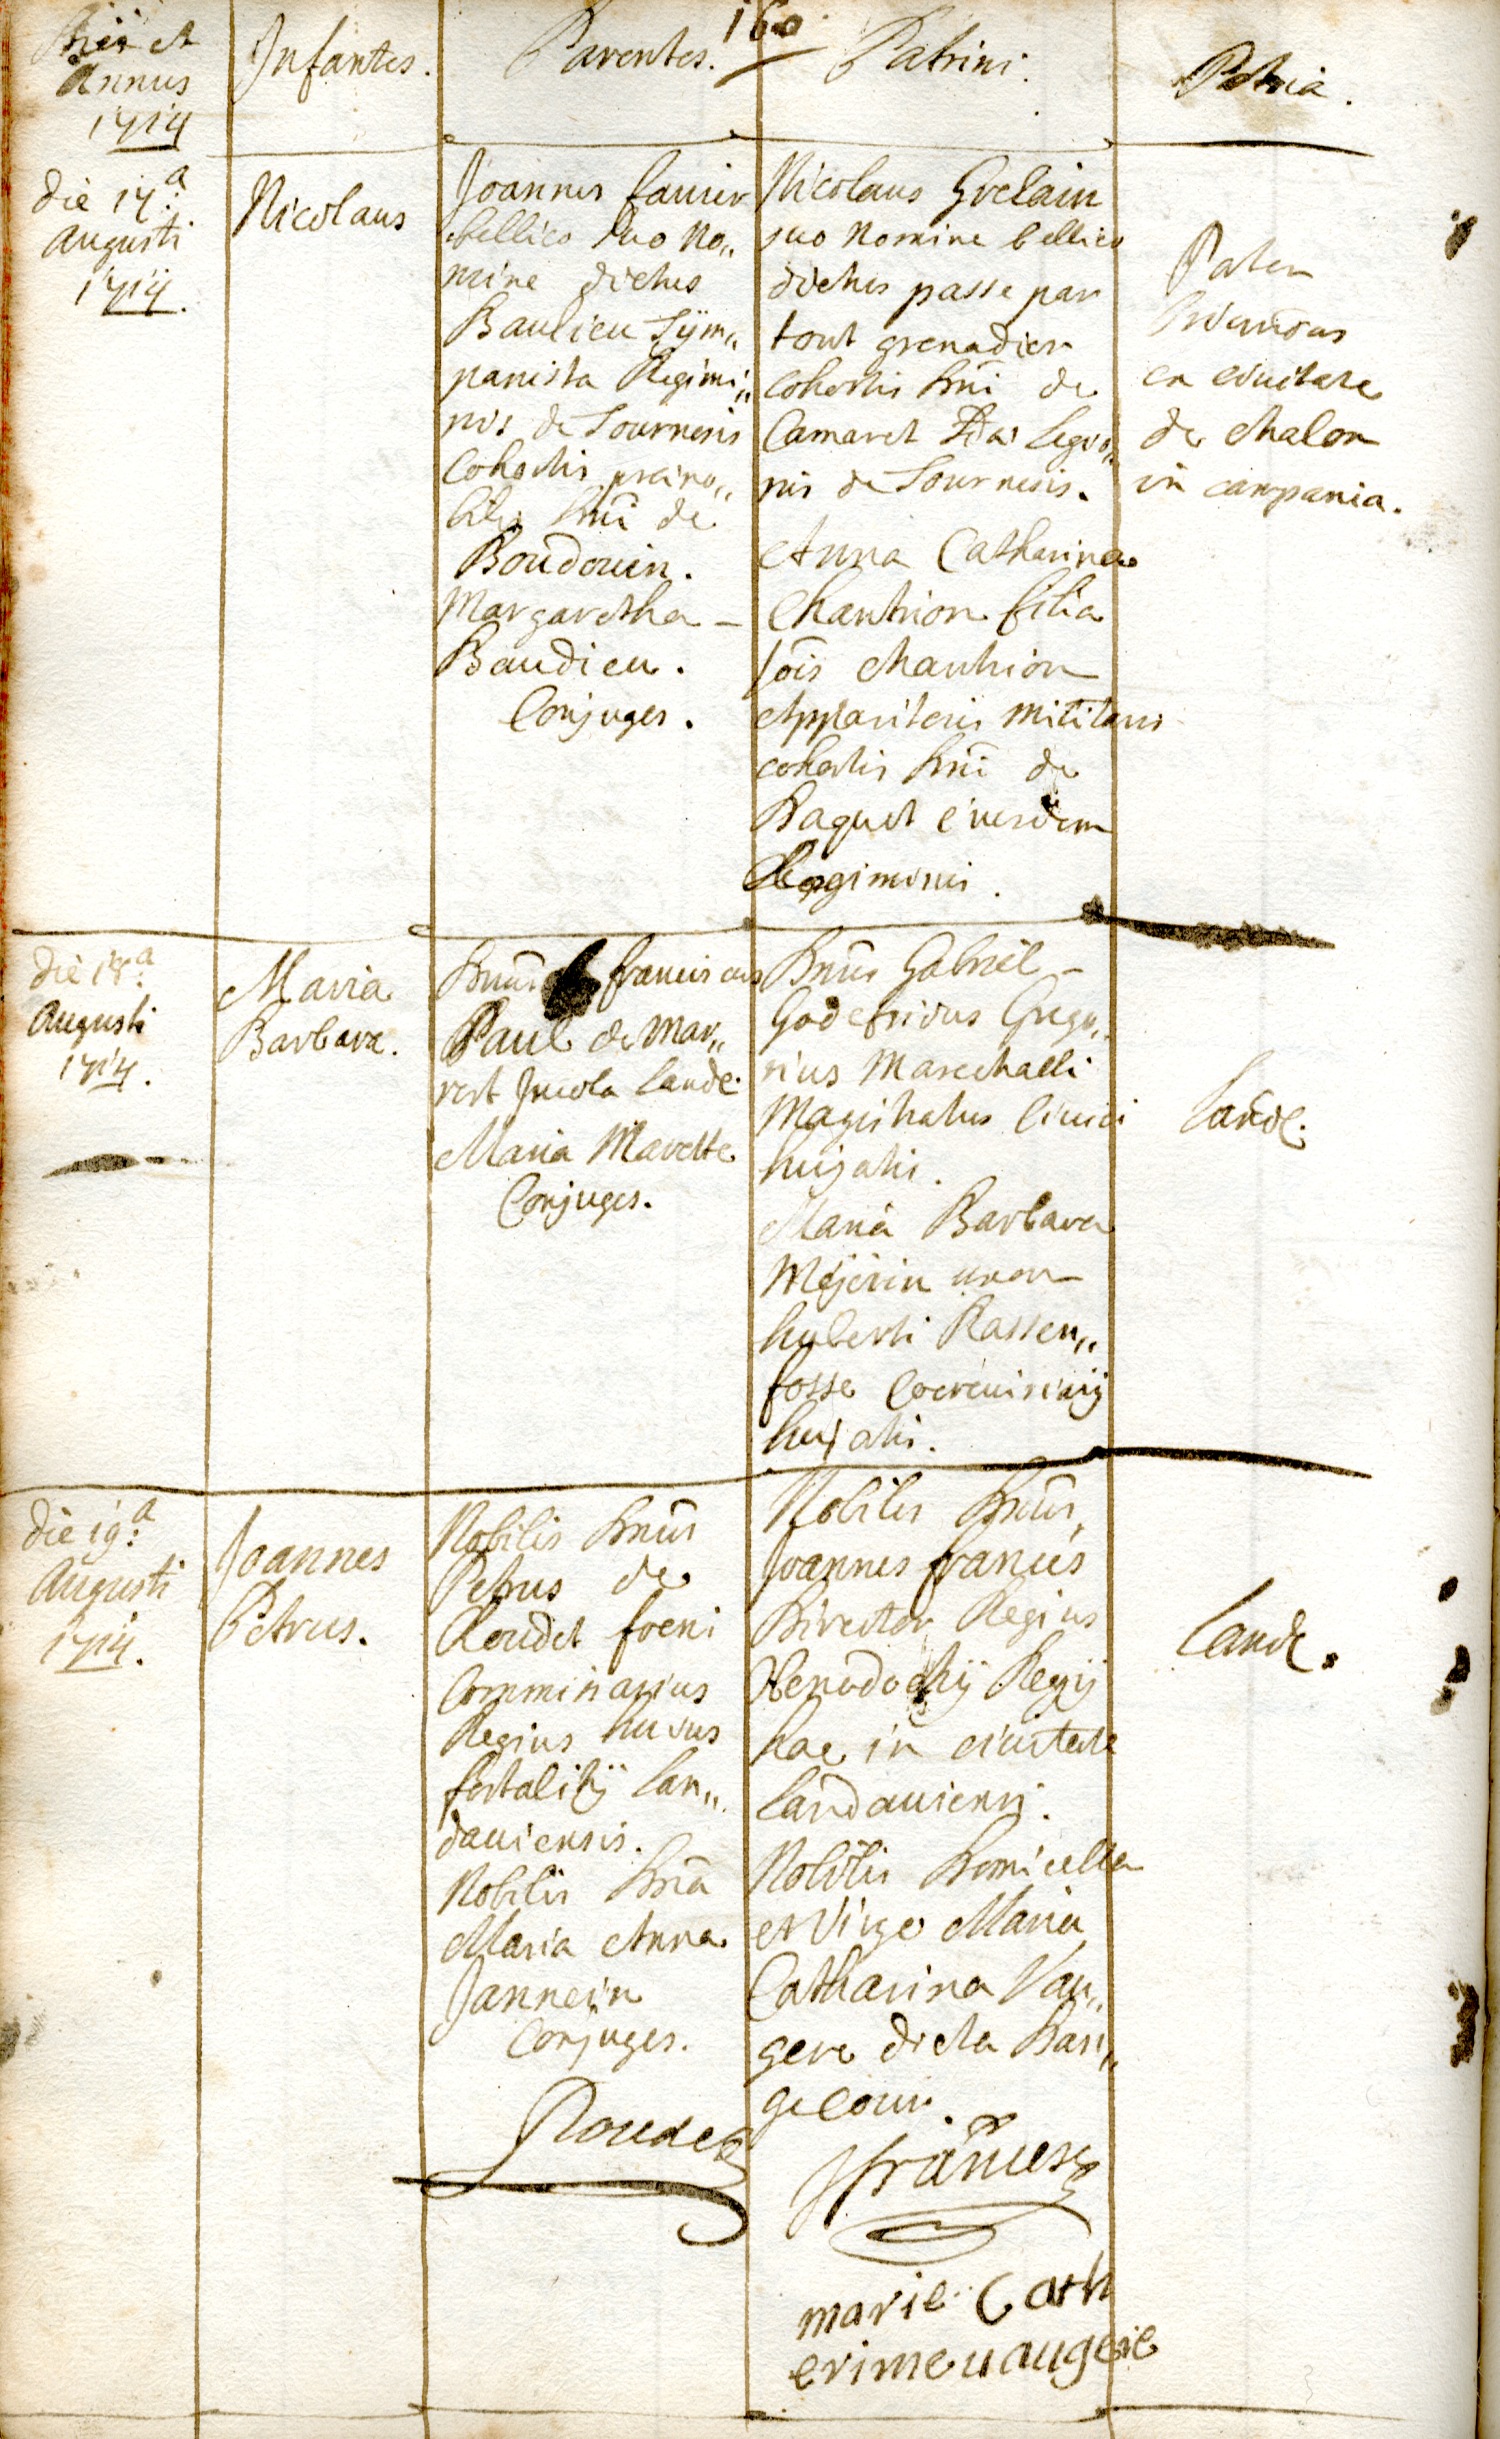 160
Dies et
Annus
1714
Infantes.
Parentes.
Patrini.
Patria.
die 17.a
Augusti
1714.
Nicolaus
Joannes
bellico suo no„
mine dictus
Baulieu Tÿm„
panista Regimi„
nis de Tournesis
Cohortis praeno„
bilis Dni de
Boudouin.
Margaretha –
Baudieu.
Conjuges.
Nicolaus Grelain
suo Nomine bellico
dictus passe par
tout grenadier
Cohortis Dni de
Camaret legio„
nis de Tournesis.
Anna Catharina
Chantrion filia
Jois Chantrion
Apparitoris militaris
cohortis Dni de
Baquet eiusdem
Regiminis.
Pater
oriundus
ex civitate
de Chalon
in campania.
die 18.a
Augusti
1714.
Maria
Barbara.
Dnus franciscus
Paul de Mar„
rest Incola Landc.
Maria Marette
Conjuges.
Dnus Gabriël –
Godefridus Grego„
rius Marechalli
Magistratus Civici
hujatis.
Maria Barbara
Meÿerin uxor
huberti Rassen„
fosse Cocreuisiarij
hujatis.
Landc.
die 19.a
Augusti
1714.
Joannes
Petrus.
Nobilis Dnus
Petrus de
Roudet foeni
Commissarius
Regius huius
fortalitÿ Lan„
dauiensis.
Nobilis Dna
Maria Anna
Jannein
Conjuges.
Roudet
Nobilis Dnus,
Joannes francès
Director Regius
Xenodochÿ Regÿ
hac in civitate
Landauiensi.
Nobilis Domicella
et Virgo Maria
Catharina Vau„
gere dicta Bari„
gecour.
Jfrancesc
marie Cath
erine uaugerie
Landc.